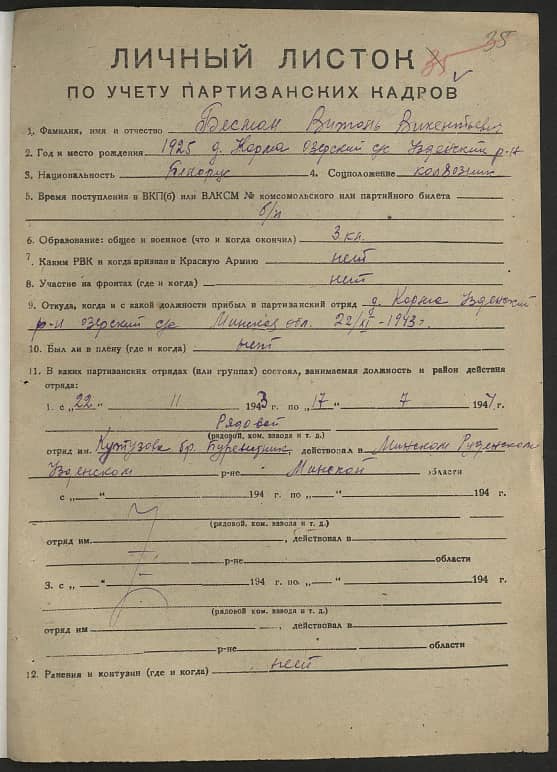 35
35
ЛИЧНЫЙ ЛИСТОК
ПО УЧЕТУ ПАРТИЗАНСКИХ КАДРОВ
1. Фамилия, имя и отчество Викентьевич
2. Год и место рождения 1925 д. Карма Озерский с/с Узденский р-н
3. Национальность Беларус 4. Соцположение колхозник
5. Время поступления в ВКП(б) или ВЛКСМ № комсомольского или партийного билета
б/п
6. Образование: общее и военное (что и когда окончил) 3 кл.
7. Каким РВК и когда призван в Красную Армию нет
8. Участие на фронтах (где и когда) нет
9. Откуда, когда и с какой должности прибыл в партизанский отряд д. Карма Узденский
р-н Озерский с/с Минская обл. 22/XI-1943г.
10. Был ли в плену (где и когда) нет
11. В каких партизанских отрядах (или группах) состоял, занимаемая должность и район действия
отряда:
1. с „22“ 11 1943 г. по „17“ 7 1944 г.
Рядовой
(рядовой, ком. взвода и т. д.)
отряд им. Кутузова бр. Буревестник, действовал в Минском Руденском
Узденском р-не Минской области
с „ “ 194 г. по „ “ 194 г.
(рядовой, ком. взвода и т. д.)
отряд им. , действовал в
р-не области
3. с „ “ 194 г. по „ “ 194 г.
(рядовой, ком. взвода и т. д.)
отряд им , действовал в
р-не области
12. Ранения и контузии (где и когда) нет